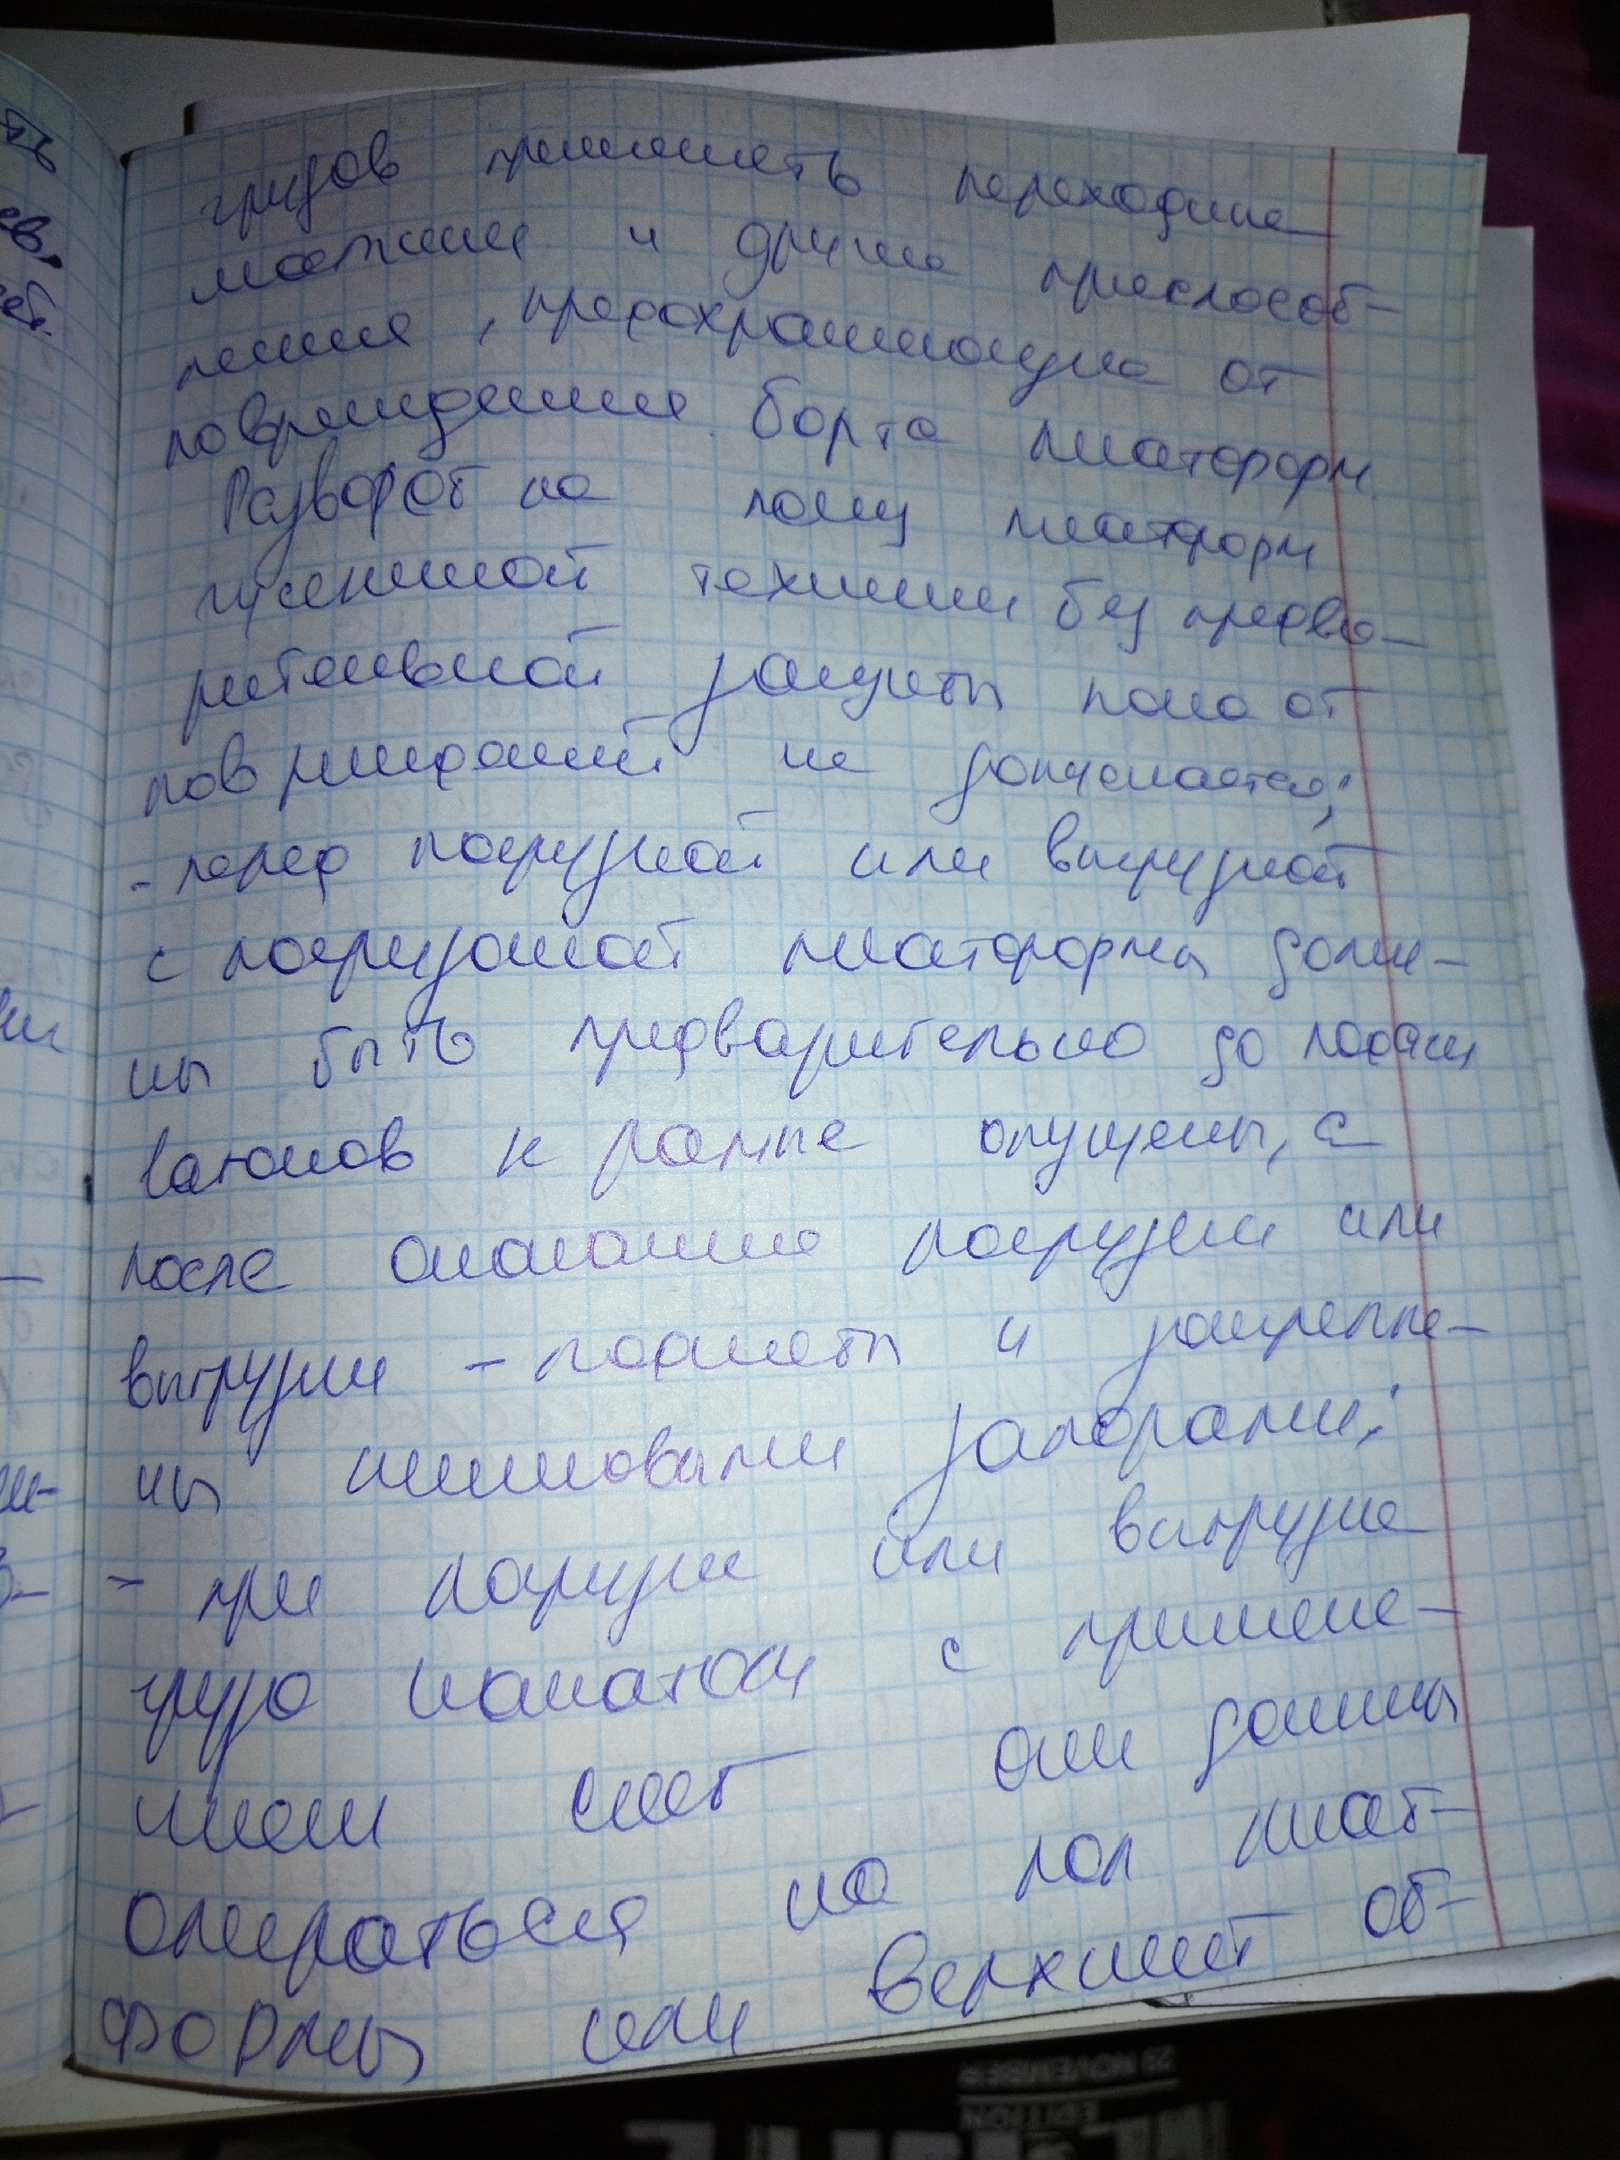 грузов применять переходные
мостики и другие приспособ-
ления, предохраняющие от
повреждения борта платформ
Разворот на полу платформ
гусеничной техники без предва-
рительной защиты пола от
повреждений не допускается;
- перед погрузкой или выгрузкой
с погрузкой платформы долж-
ны быть предварительно до подачи
вагонов к рампе опущены, а
после окончания погрузки или
выгрузки - подняты и закрепле-
ны клиновыми запорами;
- при погрузке или выгрузке
груза накатом с примене-
нием слег они должны
опираться на пол плат-
формы или верхнюю об-
29 NOVEMBER
EDITION